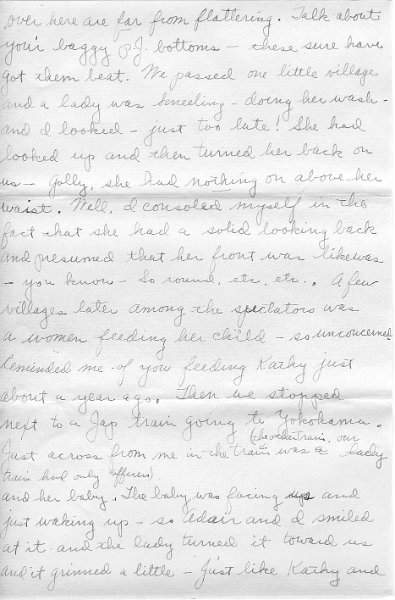 over here are far from flattering. Talk about
your baggy P.J. bottoms — these sure have
got them beat. We passed one little village
and a lady was kneeling - doing her wash -
and I looked - just too late! She had
looked up and then turned her back on
us — Golly, she had nothing on above her
waist. Well, I consoled myself in the
fact that she had a solid looking back
and presumed that her front was likewas
- you know - so round, etc, etc.. A few
villages later among the spectators was
a women feeding her child - so unconcerned
Reminded me of you feeding Kathy just
about a year ago. Then we stopped
next to a Jap train going to Yokohama.
(another train, our
Just across from me in the train was a lady
train had only officers)
and her baby. The baby was facing up and
just waking up - so Adair and I smiled
at it and the lady turned it toward us
and it grinned a little - just like Kathy and